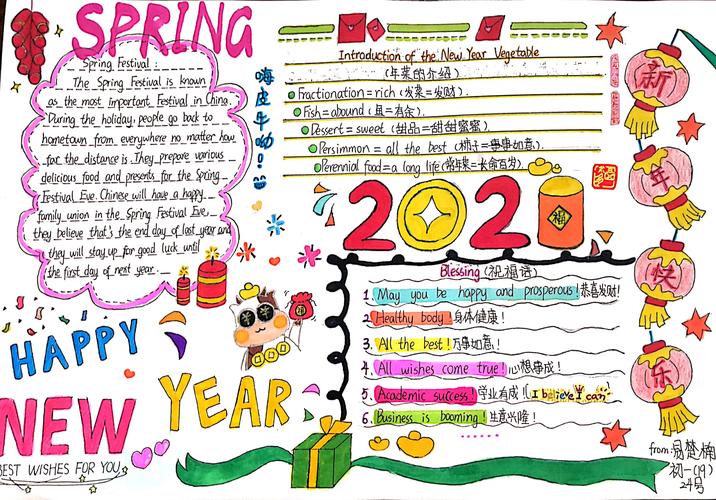 SPRING
Spring Festival:
The Spring Festival is known
as the most important Festival in China.
During the holiday, people go back to
hometown from everywhere no matter how
far the distance is. They prepare various
delicious food and presents for the Spring
Festival Eve. Chinese will have a happy
family union in the Spring Festival Eve,
they believe that's the end of last year and
they will stay up for good luck until
the first day of next year.
嗨皮牛呦!
Introduction of the New Year Vegetable
(年菜的介绍)
Fractionation = rich (发菜=发财).
Fish = abound (鱼=有余).
Dessert = sweet (甜品=甜甜蜜蜜)
Persimmon = all the best (柿汁=事事如意).
Perennial food = a long life (常年菜=长命百岁).
2020
福
新
年
快
乐
Blessing (祝福语)
1. May you be happy and prosperous! 恭喜发财!
2. Healthy body! 身体健康!
3. All the best! 万事如意!
4. All wishes come true! 心想事成!
5. Academic success! 学业有成! I believe I can
6. Business is booming! 生意兴隆!
HAPPY
NEW
YEAR
BEST WISHES FOR YOU
from: 易楚楠
初一(19)
24号